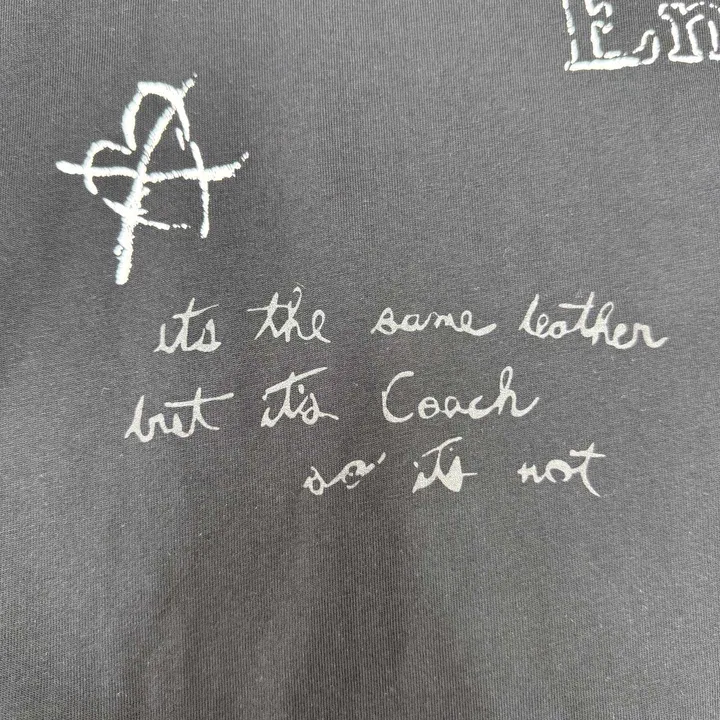 En
its the same leather
but it's Coach
so it's not